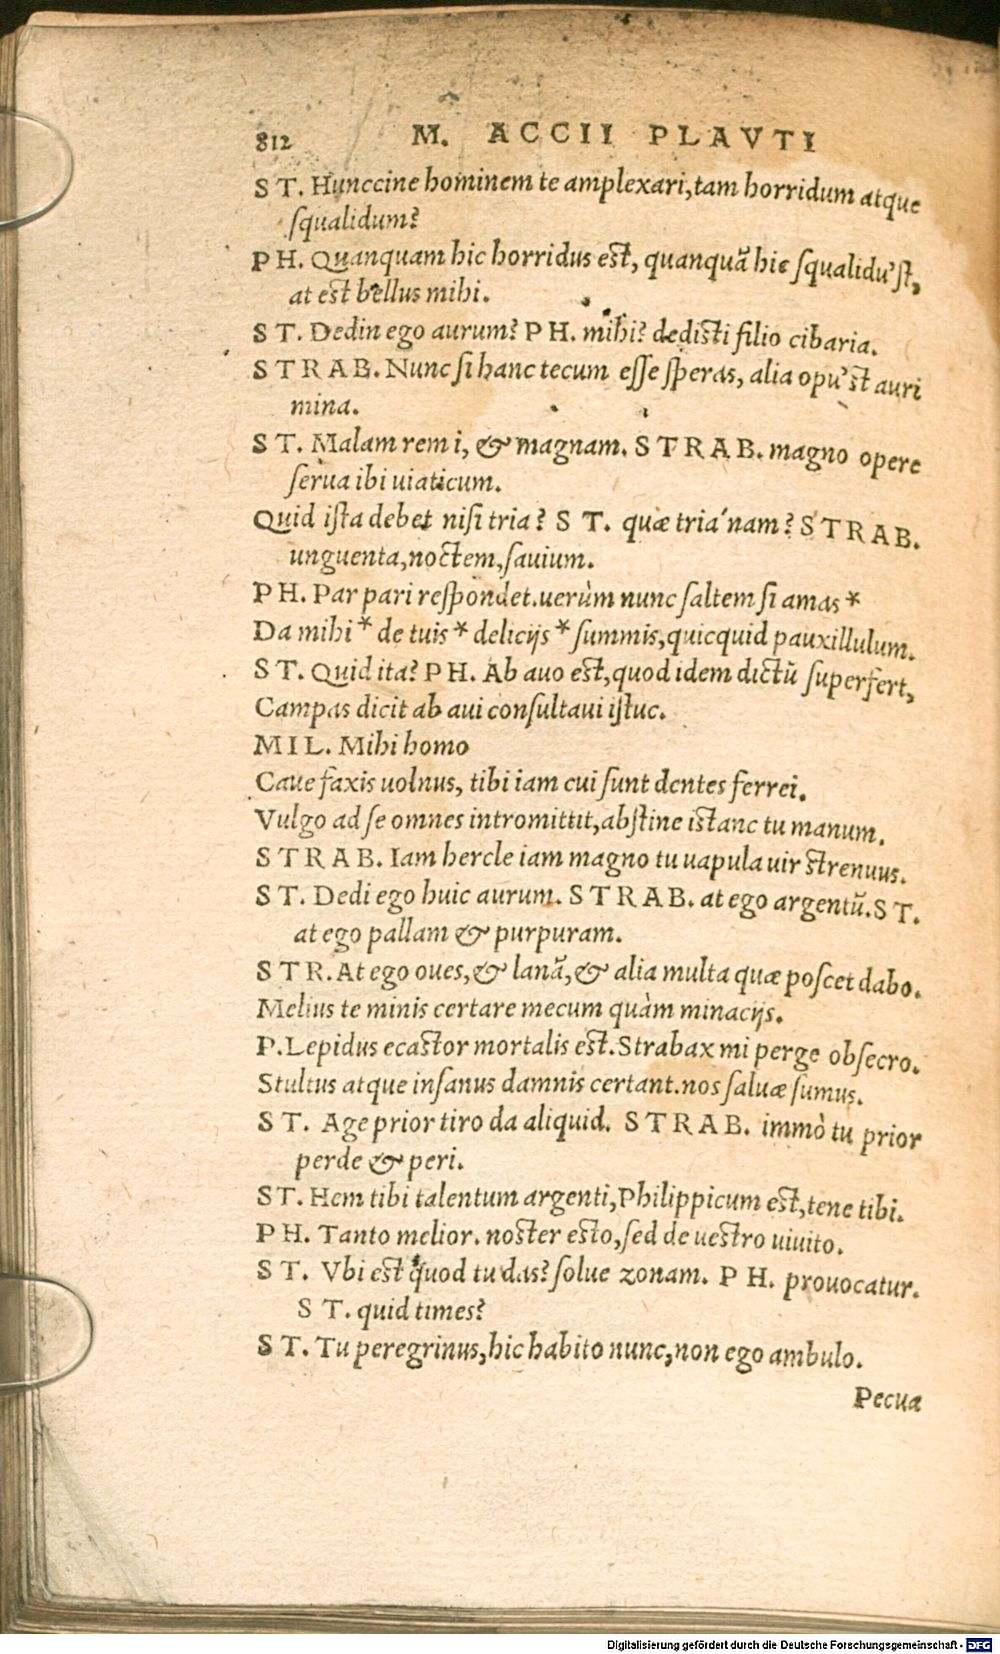 812 M. ACCII PLAVTI
S T. Hunccine hominem te amplexari, tam horridum atque
ſqualidum?
P H. Quanquam hic horridus est, quanquã hic ſqualidu'ſt,
at est bellus mihi.
S T. Dedin ego aurum? P H. mihi? dedisti filio cibaria.
S T R A B. Nunc ſi hanc tecum eſſe ſperas, alia opu'st auri
mina.
S T. Malam rem i, & magnam. S T R A B. magno opere
ſerua ibi uiaticum.
Quid iſta debet niſi tria? S T. quæ tria'nam? S T R A B.
unguenta, noctem, ſauium.
P H. Par pari reſpondet. uerùm nunc ſaltem ſi amas *
Da mihi * de tuis * delicijs * ſummis, quicquid pauxillulum.
S T. Quid ita? P H. Ab auo est, quod idem dictũ ſuperfert,
Campas dicit ab aui conſultaui iſtuc.
M I L. Mihi homo
Caue faxis uolnus, tibi iam cui ſunt dentes ferrei.
Vulgo ad ſe omnes intromittit, abſtine istanc tu manum.
S T R A B. Iam hercle iam magno tu uapula uir strenuus.
S T. Dedi ego huic aurum. S T R A B. at ego argentũ. S T.
at ego pallam & purpuram.
S T R. At ego oues, & lanã, & alia multa quæ poſcet dabo.
Melius te minis certare mecum quàm minacijs.
P. Lepidus ecastor mortalis est. Strabax mi perge obſecro.
Stultus atque inſanus damnis certant. nos ſaluæ ſumus.
S T. Age prior tiro da aliquid. S T R A B. immò tu prior
perde & peri.
S T. Hem tibi talentum argenti, Philippicum est, tene tibi.
P H. Tanto melior. noster esto, ſed de uestro uiuito.
S T. Vbi est quod tu das? ſolue zonam. P H. prouocatur.
S T. quid times?
S T. Tu peregrinus, hic habito nunc, non ego ambulo.
Pecua
Digitalisierung gefördert durch die Deutsche Forschungsgemeinschaft - DFG